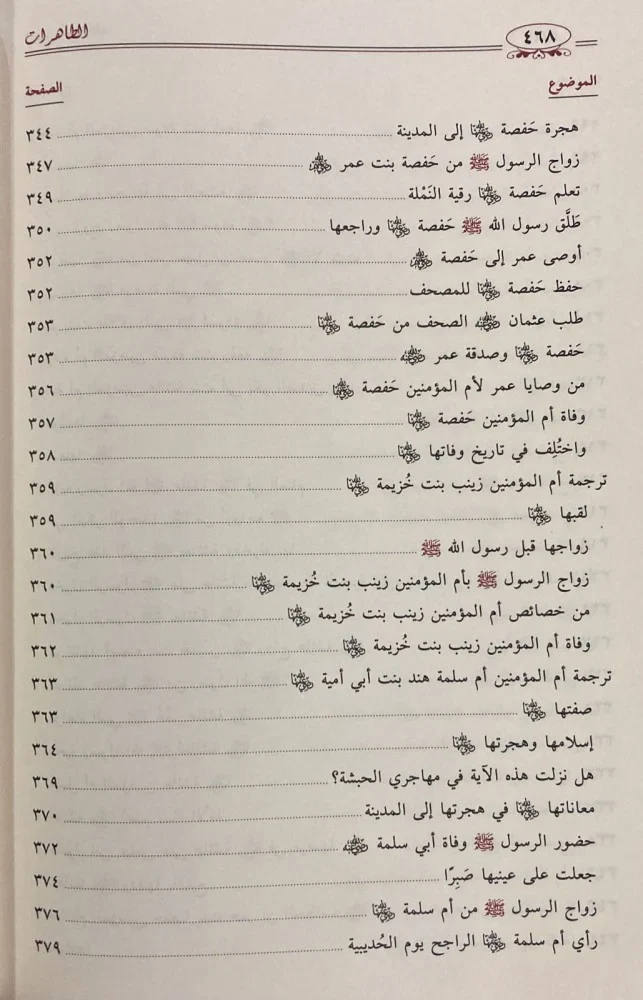 ٤٦٨ الطاهرات
الموضوع الصفحة
هجرة حَفصة رضي الله عنها إلى المدينة ٣٤٤
زواج الرسول ﷺ من حَفصة بنت عمر رضي الله عنهما ٣٤٧
تعلم حَفصة رضي الله عنها رقية النَمْلة ٣٤٩
طَلَّق رسول الله ﷺ حَفصة رضي الله عنها وراجعها ٣٥٠
أوصى عمر إلى حَفصة رضي الله عنهما ٣٥٢
حفظ حَفصة رضي الله عنها للمصحف ٣٥٢
طلب عثمان رضي الله عنه الصحف من حَفصة رضي الله عنها ٣٥٣
حَفصة رضي الله عنها وصدقة عمر رضي الله عنه ٣٥٣
من وصايا عمر لأم المؤمنين حَفصة رضي الله عنها ٣٥٦
وفاة أم المؤمنين حَفصة رضي الله عنها ٣٥٧
واختُلِف في تاريخ وفاتها رضي الله عنها ٣٥٨
ترجمة أم المؤمنين زينب بنت خُزيمة رضي الله عنها ٣٥٩
لقبها رضي الله عنها ٣٥٩
زواجها قبل رسول الله ﷺ ٣٦٠
زواج الرسول ﷺ بأم المؤمنين زينب بنت خُزيمة رضي الله عنها ٣٦٠
من خصائص أم المؤمنين زينب بنت خُزيمة رضي الله عنها ٣٦١
وفاة أم المؤمنين زينب بنت خُزيمة رضي الله عنها ٣٦٢
ترجمة أم المؤمنين أم سلمة هند بنت أبي أمية رضي الله عنها ٣٦٣
صفتها رضي الله عنها ٣٦٣
إسلامها وهجرتها رضي الله عنها ٣٦٤
هل نزلت هذه الآية في مهاجري الحبشة؟ ٣٦٩
معاناتها رضي الله عنها في هجرتها إلى المدينة ٣٧٠
حضور الرسول ﷺ وفاة أبي سلمة رضي الله عنه ٣٧٢
جعلت على عينيها صَبِرًا ٣٧٤
زواج الرسول ﷺ من أم سلمة رضي الله عنها ٣٧٦
رأي أم سلمة رضي الله عنها الراجح يوم الحُديبية ٣٧٩